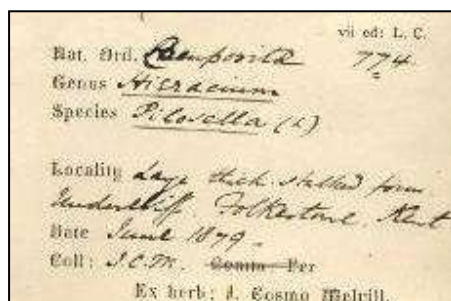 vii ed: L. C.
Nat. Ord. Compositæ 774
Genus Hieracium
Species Pilosella (L)
Locality Large thick stalked form
Undercliff. Folkestone. Kent
Date June 1879.
Coll: J.C.M. Comm Per
Ex herb: J. Cosmo Melvill.